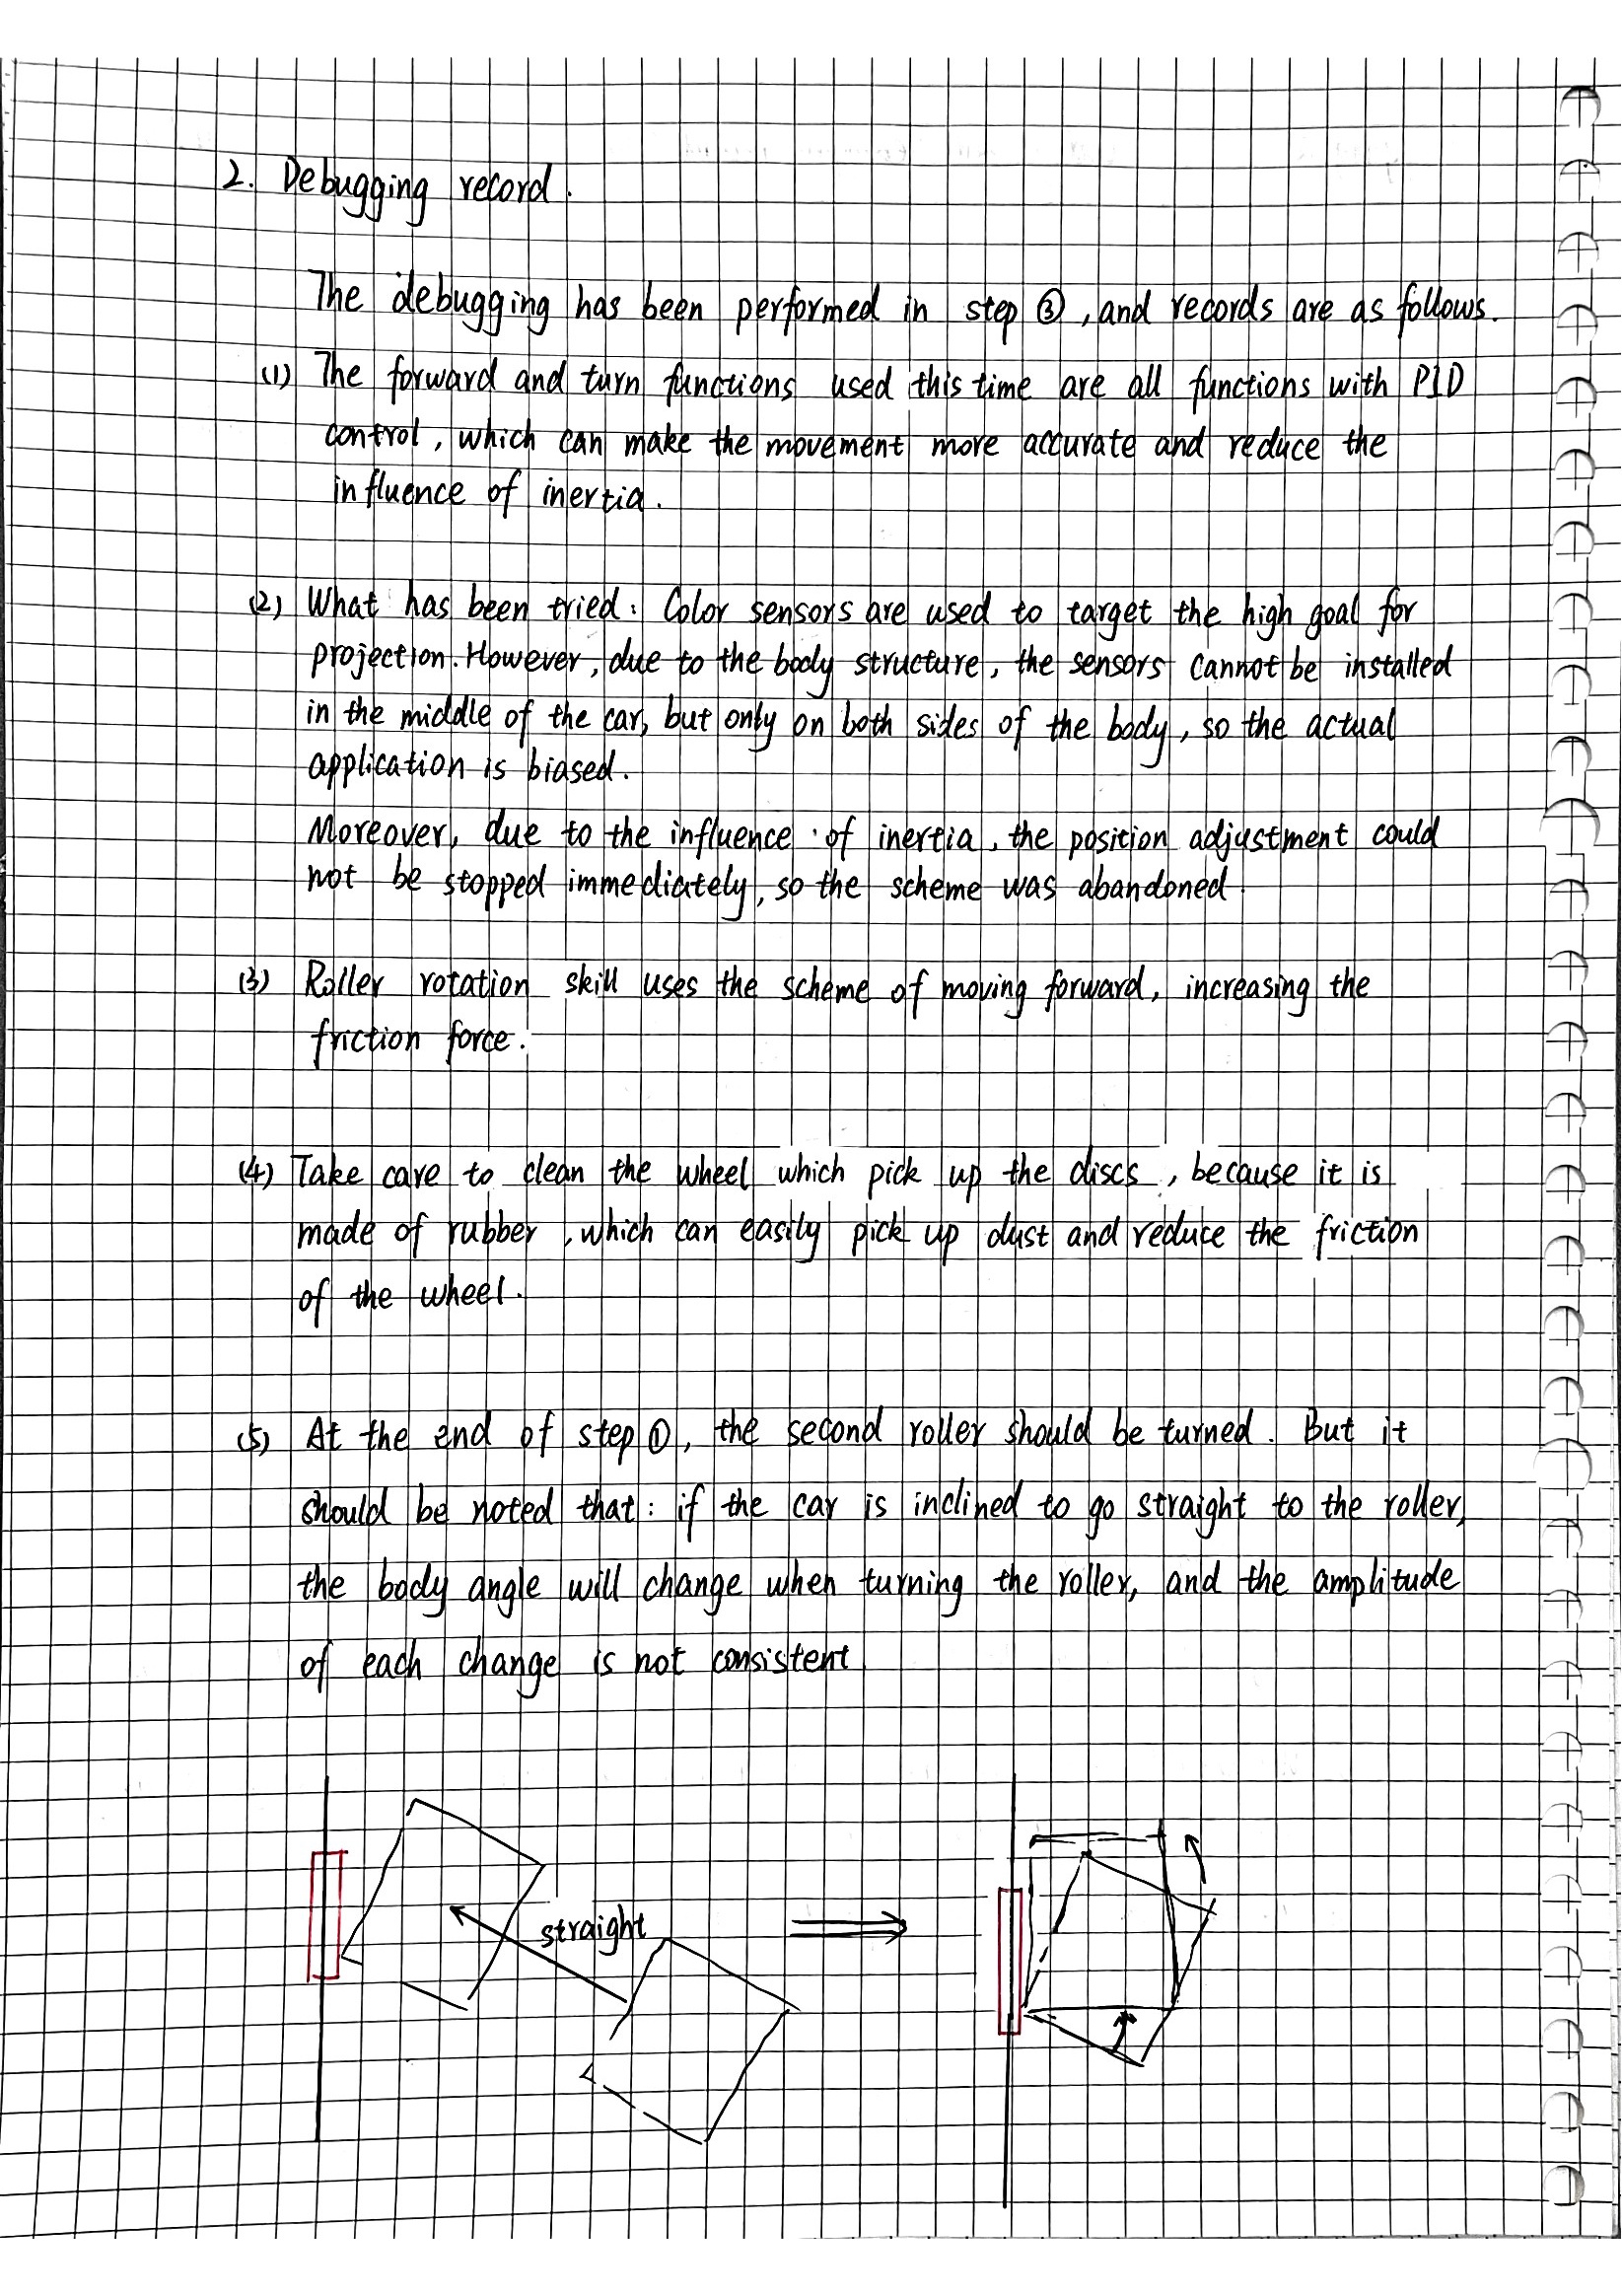 2. Debugging record.
The debugging has been performed in step ③, and records are as follows.
(1) The forward and turn functions used this time are all functions with PID
control, which can make the movement more accurate and reduce the
influence of inertia.
(2) What has been tried: Color sensors are used to target the high goal for
projection. However, due to the body structure, the sensors cannot be installed
in the middle of the car, but only on both sides of the body, so the actual
application is biased.
Moreover, due to the influence of inertia, the position adjustment could
not be stopped immediately, so the scheme was abandoned.
(3) Roller rotation skill uses the scheme of moving forward, increasing the
friction force.
(4) Take care to clean the wheel which pick up the discs, because it is
made of rubber, which can easily pick up dust and reduce the friction
of the wheel.
(5) At the end of step ①, the second roller should be turned. But it
should be noted that: if the car is inclined to go straight to the roller,
the body angle will change when turning the roller, and the amplitude
of each change is not consistent.
straight